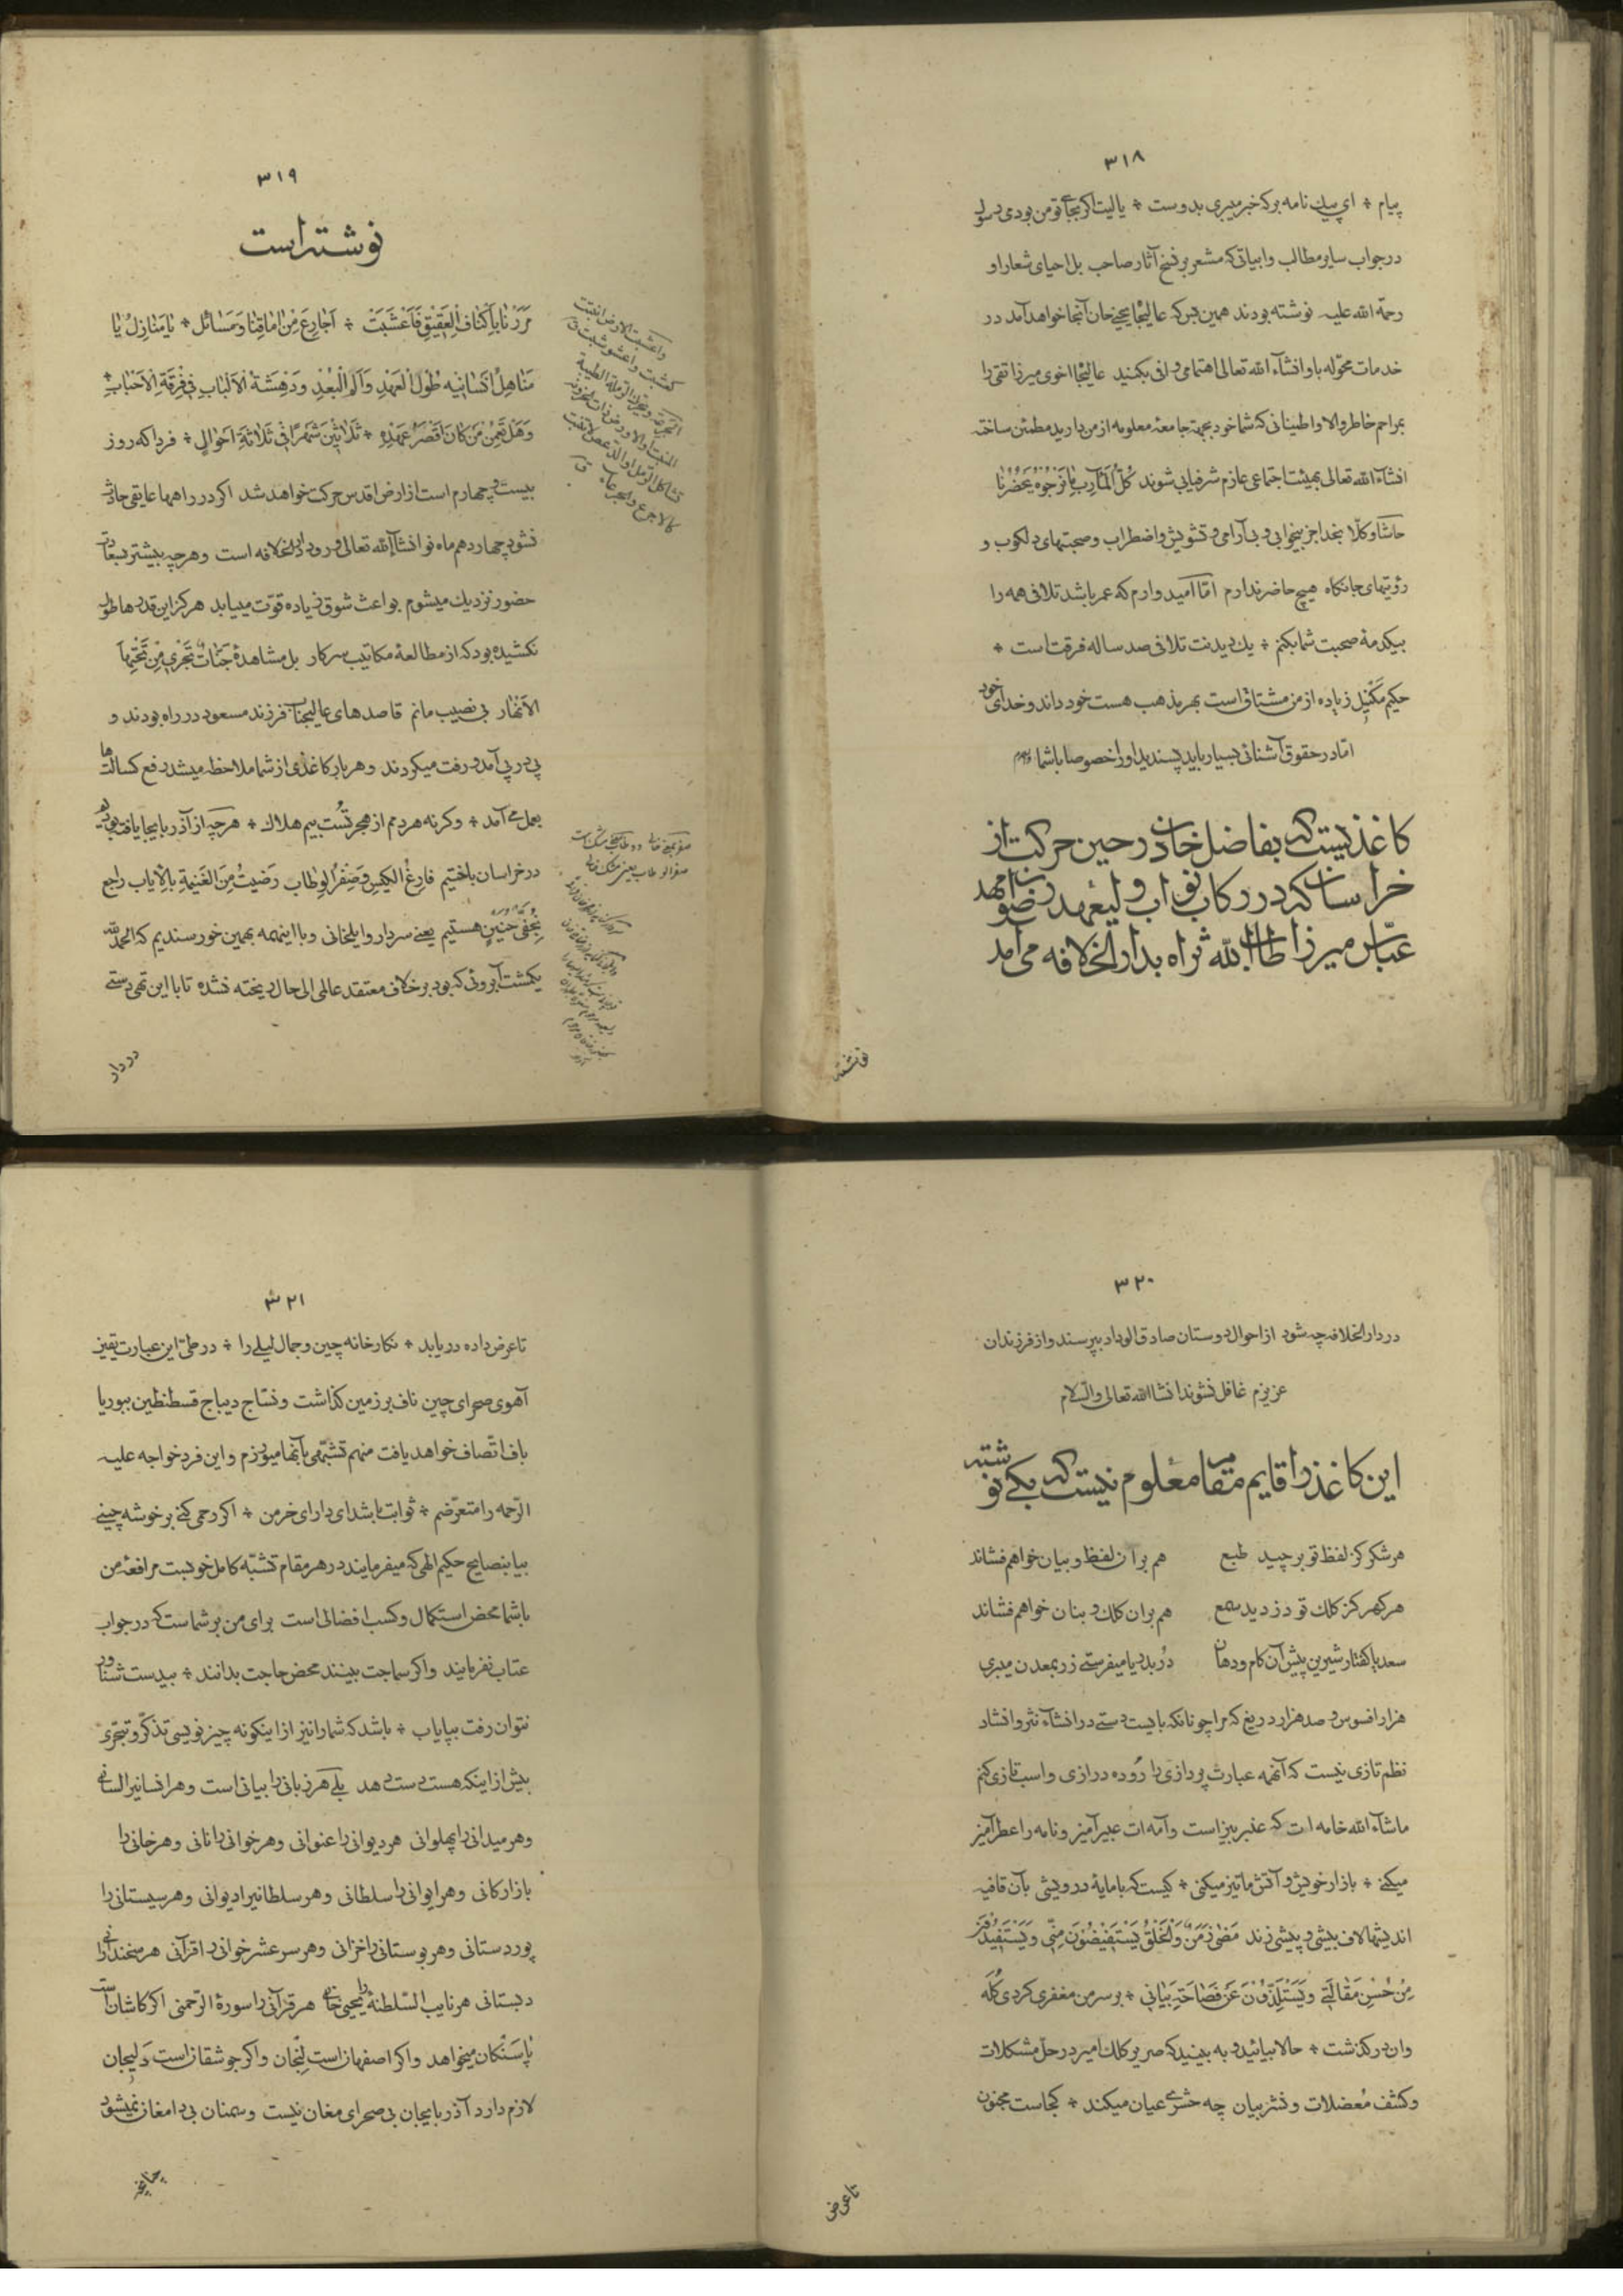 ۳۱۸
پیام * ای پیک نامه بر که خبر میبری بدوست * یا لیت اکر بجای تو من بودمی رسول
در جواب سایر مطالب و ابیاتی که مشعر بر نسخ آثار صاحب بل احیای شعار او
رحمة الله علیه نوشته بودند همین بس که عالیجاه یحیی خان آنجا خواهد آمد در
خدمات محوّله باو انشاء الله تعالی اهتمامی وافی بکنید عالیجاه اخوی میرزا تقی را
بمراحم خاطر والا و اطمینانی که شما خود بجهة جامعهٔ معلومه از من دارید مطمئن ساخته
انشاء الله تعالی بهیئت اجتماعی عازم شرفیابی شوند كُلُّ الْمَآرِبِ مَا نَرْجُوهُ يَحْضُرُنَا
حاشا و کلّا بخدا جز بیخوابی و بی آرامی و تشویش و اضطراب و صحبتهای دلکوب و
رؤیتهای جانکاه هیچ حاضر ندارم امّا امیدوارم که عمر باشد تلافی همه را
بیکدمهٔ صحبت شما بکنم * یک دیدنت تلافی صد ساله فرقت است *
حکیم مکنیل زیاده از من مشتاق است بهر مذهب هست خود داند و خدای خود
امّا در حقوق آشنائی بسیار باید پسندید او را خصوصا باشما والسلام
کاغذیست که بفاضل خان در حین حرکت از
خراسان که در رکاب نواب ولیعهد رضوان مهد
عبّاس میرزا طاب الله ثراه بدار الخلافه می آمد
نوشته
۳۱۹
نوشته است
مَرَرْنَا بِاَكْنَافِ الْعَقِيْقِ فَاَعْشَبَتْ * اَجَارِعُ مِنْ اٰمَاقِنَا وَمَسَائِل * يَا مَنَازِلُ يَا
مَنَاهِلُ اَنْسَانِيهِ طُولُ الْعَهْدِ وَاَلَمُ الْبُعْدِ وَدَهْشَةُ الْاَلْبَابِ فِی فُرْقَةِ الْاَحْبَابِ *
وَهَلْ يَعِمَنْ مَنْ كَانَ اَقْصَرُ عَهْدِهِ * ثَلَاثِيْنَ شَهْرًا فِی ثَلَاثَةِ اَحْوَالٍ * فردا که روز
بیست و چهارم است از ارض اقدس حرکت خواهد شد اکر در راهها عایقی حادث
نشود چهاردهم ماه نو انشاء الله تعالی ورود دار الخلافه است و هر چه بیشتر بسعادت
حضور نزدیک میشوم بواعث شوق زیاده قوّت مییابد هرکز این قدرها طول
نکشیده بود که از مطالعهٔ مکاتیب سرکار بل مشاهدهٔ جَنَّاتٌ تَجْرِی مِنْ تَحْتِهَا
الْاَنْهَار بی نصیب مانم قاصدهای عالیجناب فرزند مسعود در راه بودند و
پی در پی آمد و رفت میکردند و هر بار کاغذی از شما ملاحظه میشد رفع کسالتها
بعمل می آمد * و کرنه هر دمم از هجر تست بیم هلاک * هر چه از آذربایجان یافته بودیم
در خراسان باختیم فارغ الکیس و صِفْرُ الوِطَاب رَضِيْتُ مِنَ الْغَنِيْمَةِ بِالْاِيَابِ راجع
بِخُفَّیْ حُنَیْنٍ هستیم یعنی سردار و ایلخانی و با اینهمه بهمین خورسندیم که الحمد لله
یکمشت آبروئی که بود بر خلاف معتقد عالمی الی حال ریخته نشده تا با این تهی دستی
در دار
۳۲۰
در دار الخلافه چه شود از احوال دوستان صادق الوداد بپرسند و از فرزندان
عزیزم غافل نشوند انشاالله تعالی والسّلام
این کاغذ را قایم مقام معلوم نیست که بکه نوشته
هر شکر کز لفظ تو برچید طبع هم بران لفظ و بیان خواهم فشاند
هر کهر کز کلک تو دزدید سمع هم بران کلک و بنان خواهم فشاند
سعدیا کفتار شیرین پیش آن کام و دهان دُر بدریا میفرستی زر بمعدن میبری
هزار افسوس و صد هزار دریغ که مرا چونانکه بایست دستی در انشاء نثر و انشاد
نظم تازی نیست که آنهمه عبارت پردازی را روده درازی و اسب تازی کنم
ماشاء الله خامه ات که عنبر بیز است و آمه ات عبیر آمیز و نامه را عطر آمیز
میکنی * بازار خویش و آتش ما تیز میکنی * کیست که با مایهٔ درویشی بآن قافیه
اندیشها لاف بیشی و پیشی زند مَضٰی زَمَنٌ وَالْخَلْقُ يَسْتَفِيْضُوْنَ مِنِّی وَيَسْتَفِيْدُوْنَ
مِنْ حُسْنِ مَقَالَتِی وَيَسْتَلِذُّوْنَ عَنْ فَصَاحَةِ بَيَانِی * بر سر من مغفری کردی کله
وان در کذشت * حالا بیائید و به بینید که صریر کلک امیر در حلّ مشکلات
و کشف مُعضلات و نشر بیان چه حشری عیان میکند * کجاست مجنون
تا عرض
۳۲۱
تا عرض داده دریابد * نکارخانه چین و جمال لیلی را * در طیّ این عبارت یقین
آهوی صحرای چین ناف بر زمین کذاشت و نسّاج دیباج قسطنطین ببوریا
باف اتّصاف خواهد یافت منهم تشبّهی بآنها میورزم و این فرد خواجه علیه
الرّحمه را متعرّضم * ثوابت باشد ای دارای خرمن * اکر رحمی کنی بر خوشه چینی
بیا بنصایح حکیم الهی که میفرمایند در هر مقام تشبّه کامل خوبست مرافعهٔ من
باشما محض استکمال و کسب افضالی است برای من بر شماست که در جواب
عتاب نفرمایند واکر سماجت بینند محض حاجت بدانند * بیدست شناور
نتوان رفت بپایاب * باشد که شما را نیز از اینکونه چیز نویسی تذکّر و تبحّری
بیش از اینکه هست دست دهد بلی هر زبانی را بیانی است و هر انسانیرا لسانی
و هر میدانی را پهلوانی هر دیوانی را عنوانی و هر خوانی را نانی و هر خانی را
بازارکانی و هر ایوانی را سلطانی و هر سلطانیرا دیوانی و هر سیستانی را
پور دستانی و هر بوستانی را خزانی و هر سر عشر خوانی را قرآنی هر سخندانی را
دبستانی هر نایب السّلطنهٔ را یحیی خانی هر قرآنی را سورهٔ الرّحمنی اکر کاشان است
پاسَنکان میخواهد واکر اصفهان است لِنجان واکر جوشقان است دَلیجان
لازم دارد آذربایجان بی صحرای مغان نیست و سمنان بی دامغان نمیشود